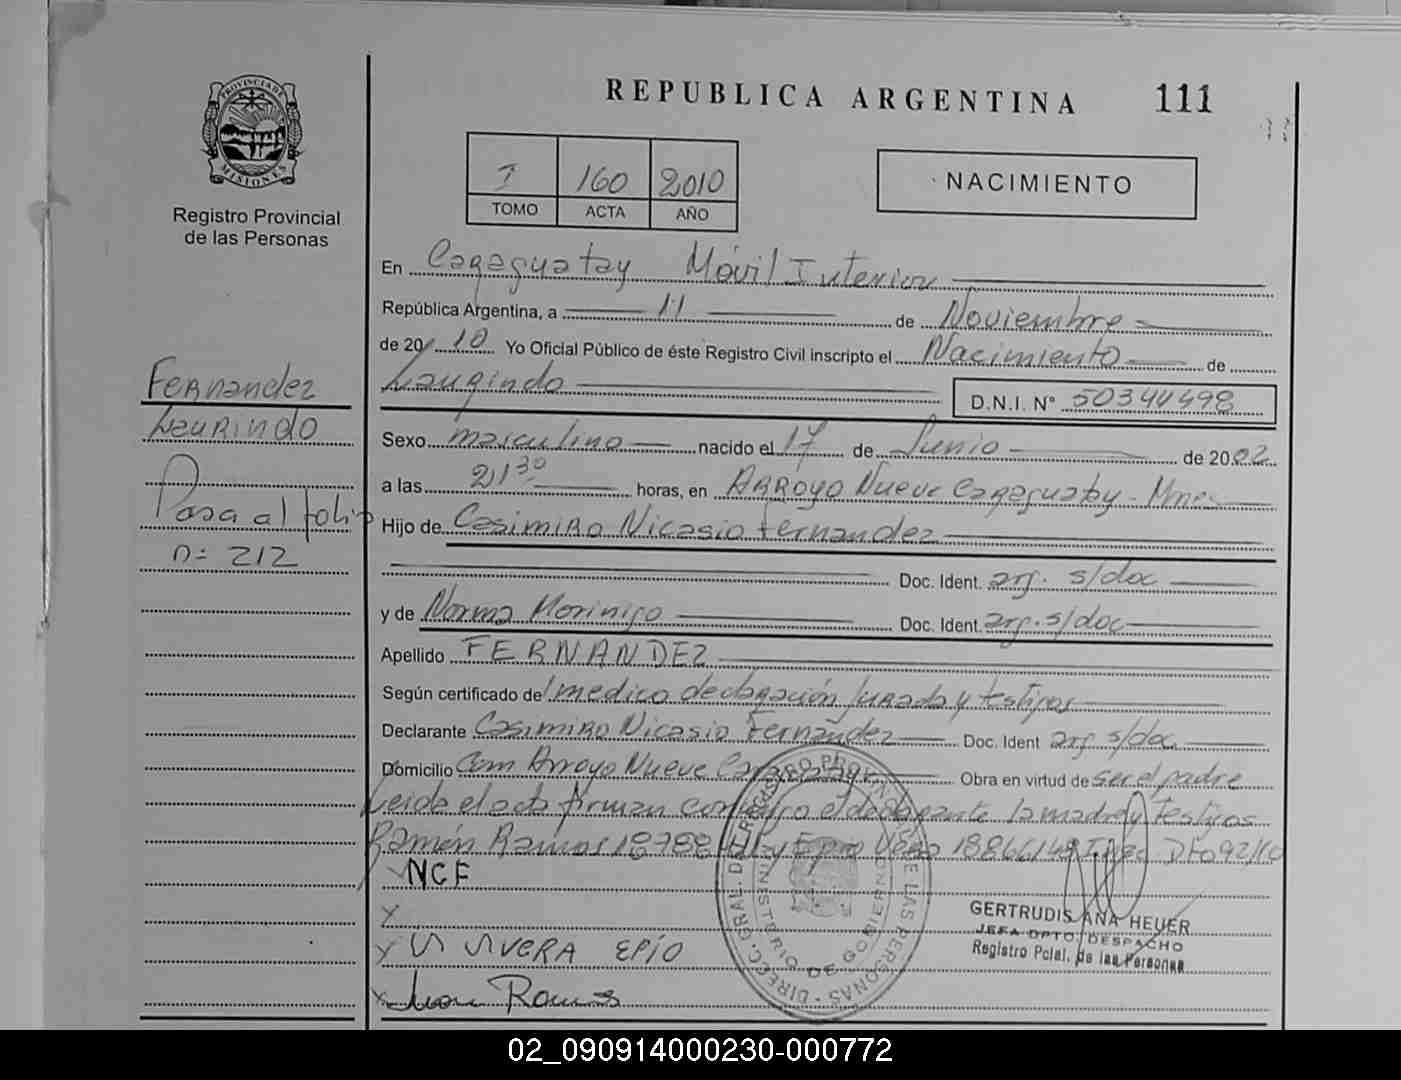 REPUBLICA ARGENTINA 111
PROVINCIA DE MISIONES
Registro Provincial
de las Personas
I 160 2010
TOMO ACTA AÑO
NACIMIENTO
En Caraguatay Móvil Interior
República Argentina, a 11 de Noviembre
de 2010 Yo Oficial Público de éste Registro Civil inscripto el Nacimiento de
Laurindo D.N.I. N° 50344498
Fernandez
Laurindo
Pasa al folio
n= 212
Sexo masculino nacido el 17 de Junio de 2002
a las 21 30 horas, en Arroyo Nueve Caraguatay - Mnes
Hijo de Casimiro Nicasio Fernandez
Doc. Ident. arg. s/doc
y de Norma Morinigo Doc. Ident. arg. s/doc
Apellido FERNANDEZ
Según certificado de medico declaración Jurada y testigos
Declarante Casimiro Nicasio Fernandez Doc. Ident arg s/doc
Domicilio Com Arroyo Nueve Caraguatay Obra en virtud de ser el padre
Leida el acta firman conmigo el declarante la madre y testigos
Ramón Ramos 18788 Vera
NCF
X
X VERA EPIO
X Juan Ramos
DIREC. GRAL. DEL REGISTRO PROVINCIAL DE LAS PERSONAS
MINISTERIO DE GOBIERNO
GERTRUDIS ANA HEUER
JEFA DPTO. DESPACHO
Registro Pcial. de las Personas
02_090914000230-000772